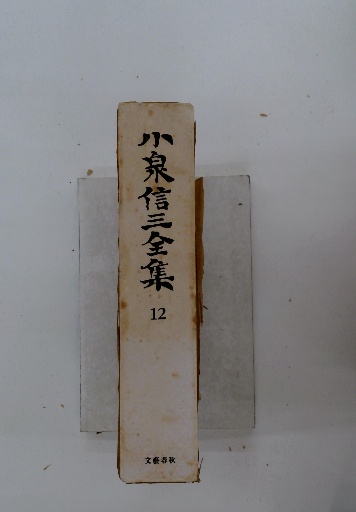 小泉信三全集
12
文藝春秋